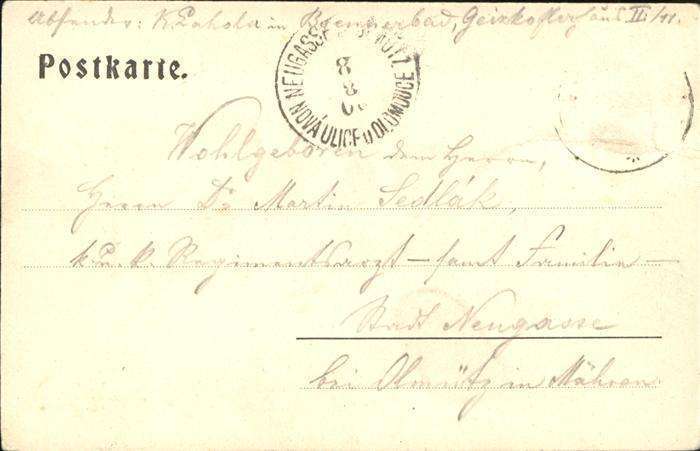 Absender: K. Lahola in Brennerbad, Geizkoflerhaus II./11.
Postkarte.
NEUGASSE OLMÜTZ 1
8
8
0
NOVÁ ULICE u OLOMOUCE
Wohlgeboren dem Herrn,
Herrn Dr Martin Sedlák,
k. u. k. Regimentsarzt – samt Familie –
Stadt Neugasse
bei Olmütz in Mähren.